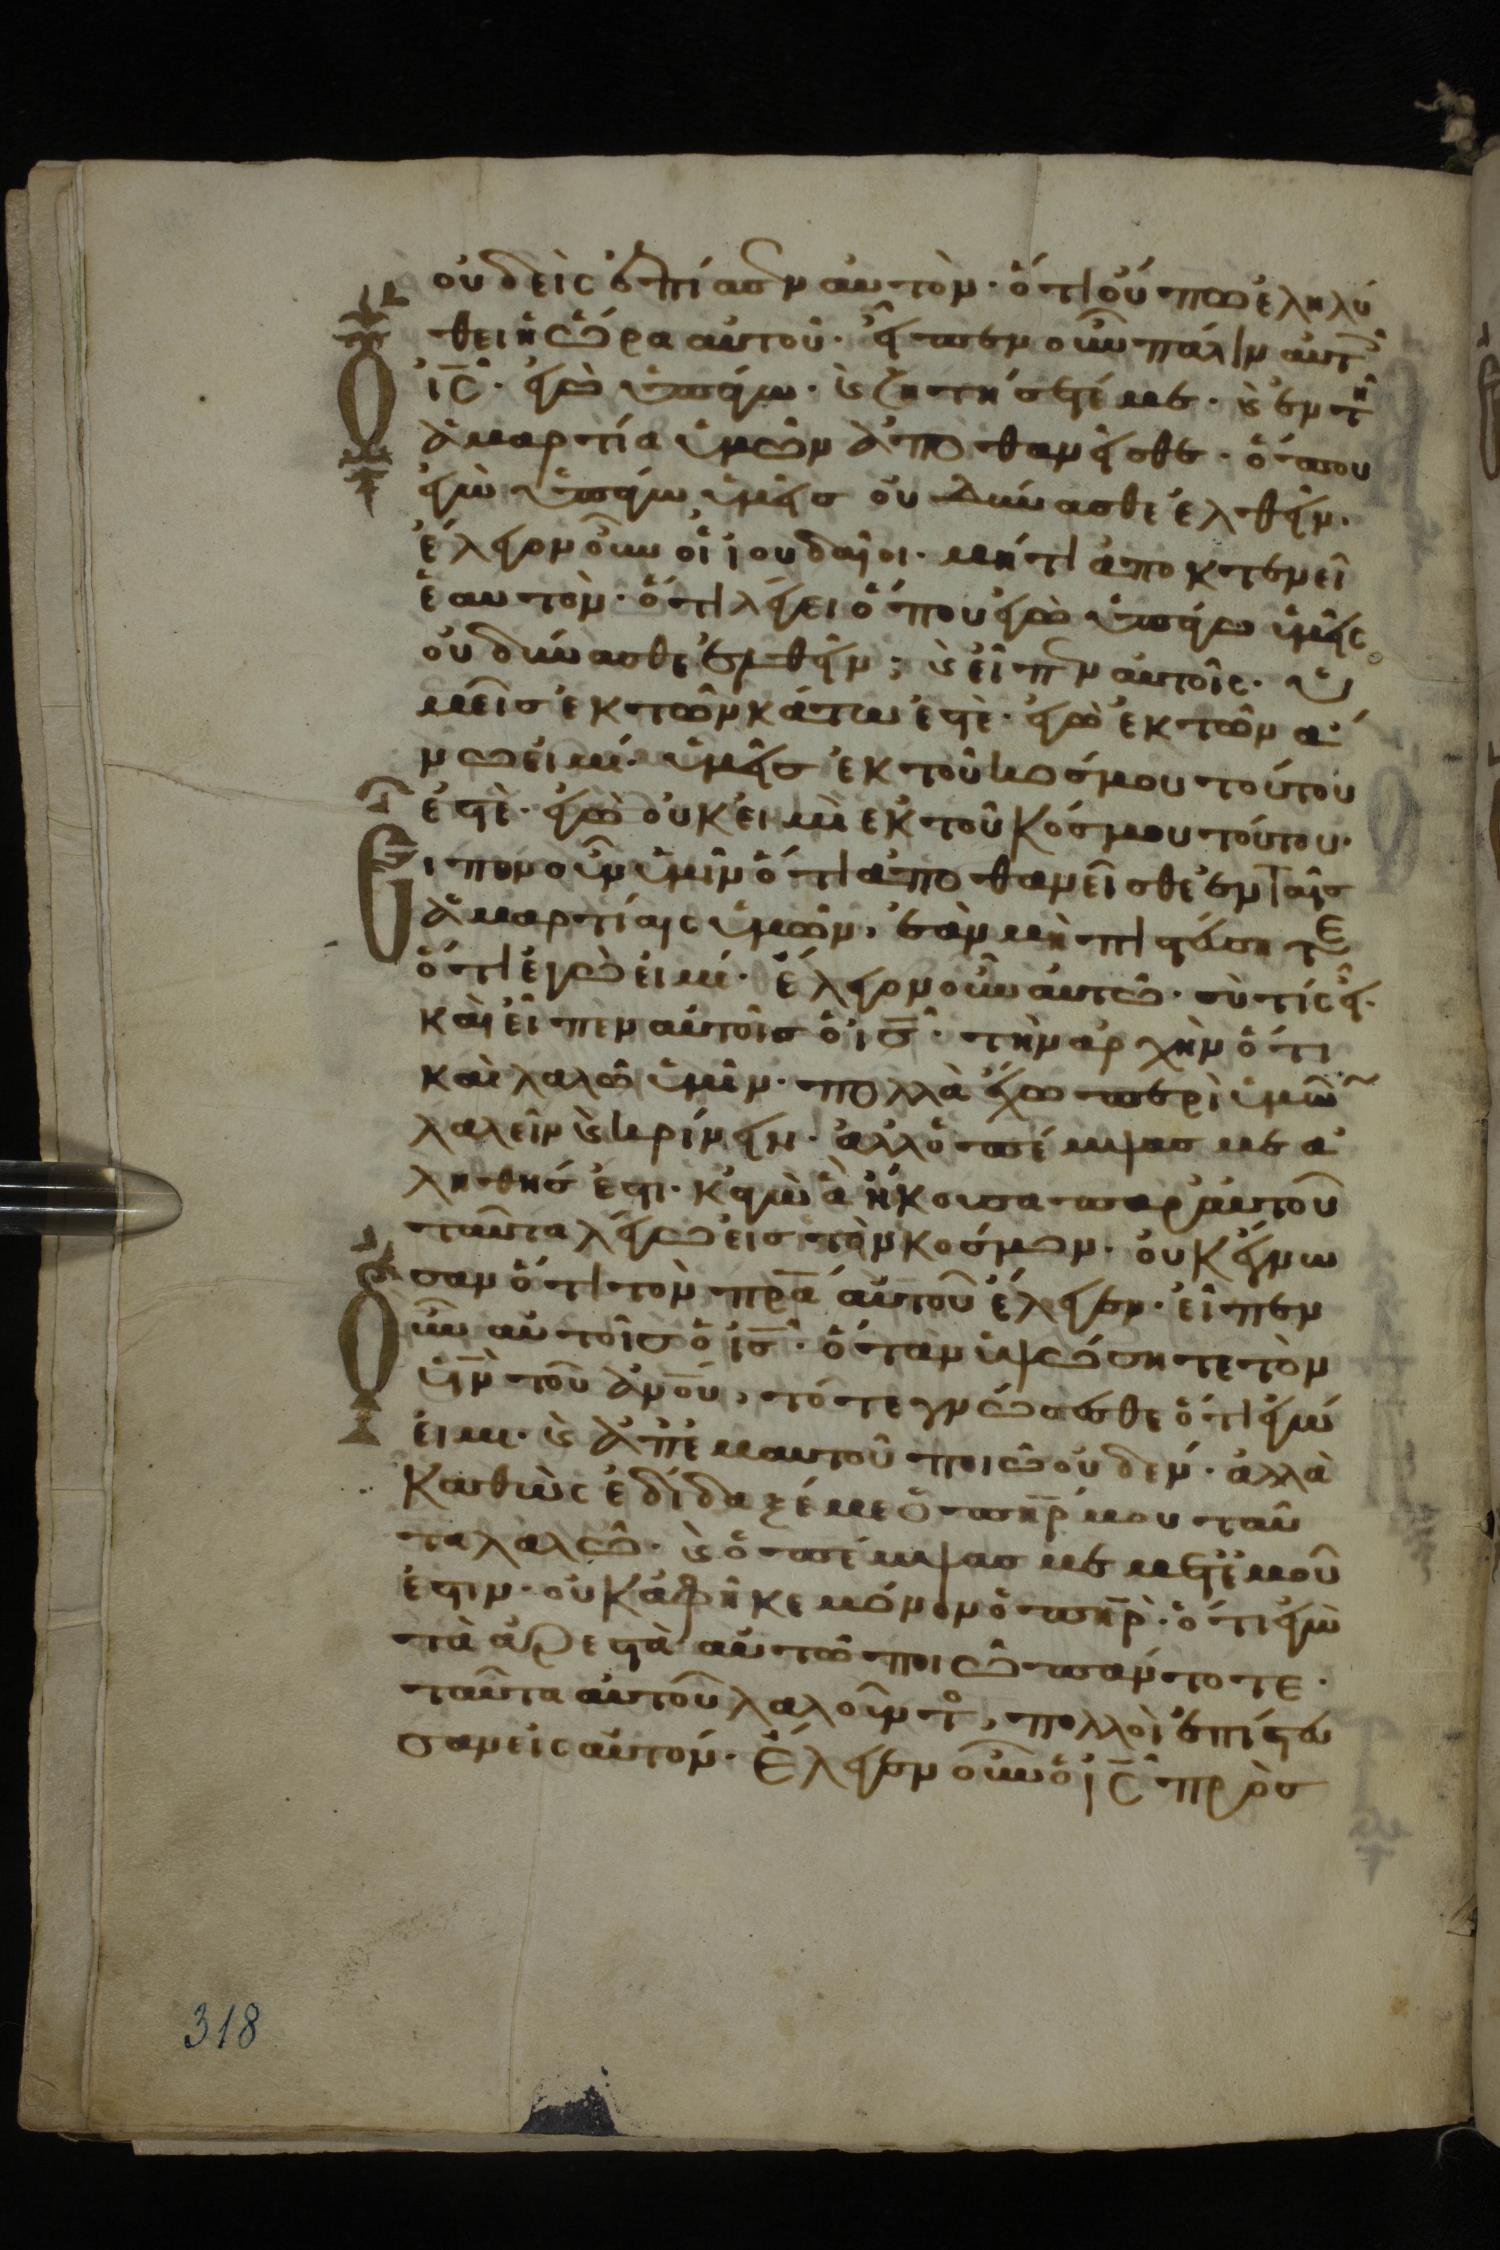 οὐδεὶς ἐπίασεν αὐτὸν· ὅτι οὔπω ἐληλύ
θει ἡ ὥρα αὐτοῦ· εἶπεν οὖν πάλιν αὐτ
Ὁ ις̅· ἐγὼ ὑπάγω· ϗ ζητήσετέ με· ϗ ἐν τῆ
ἁμαρτία ὑμῶν ἀποθανεῖσθε· ὅπου
ἐγὼ ὑπάγω ὑμεῖς οὐ δύνασθε ἐλθεῖν·
ἔλεγον οὖν οἱ ἰουδαῖοι· μήτι ἀποκτενεῖ
ἑαυτὸν· ὅτι λέγει ὅπου ἐγὼ ὑπάγω ὑμεῖς
οὐ δύνασθε ἐλθεῖν; ϗ εἶπεν αὐτοῖς· ὑ
μεῖς ἐκ τῶν κάτω ἐστὲ· ἐγὼ ἐκ τῶν ἄ
νω εἰμί· ὑμεῖς ἐκ τοῦ κόσμου τούτου
ἐστὲ· ἐγὼ οὐκ εἰμὶ ἐκ τοῦ κόσμου τούτου·
Εἶπον οὖν ὑμῖν ὅτι ἀποθανεῖσθε ἐν ταῖς
ἁμαρτίαις ὑμῶν, ἐὰν μὴ πιστεύσητε
ὅτι ἐγὼ εἰμί· ἔλεγον οὖν αὐτῶ· σὺ τίς εἶ·
καὶ εἶπεν αὐτοῖς ὁ ις̅· τὴν ἀρχὴν ὅτι
καὶ λαλῶ ὑμῖν· πολλὰ ἔχω περὶ ὑμῶν
λαλεῖν ϗ κρίνειν· ἀλλ' ὁ πέμψας με ἀ
ληθής ἐστι· κἀγὼ ἃ ἤκουσα παρ' αὐτοῦ
ταῦτα λέγω εἰς τὸν κόσμων· οὐκ ἔγνω
σαν ὅτι τὸν πρ̅α αὐτοῦ ἔλεγεν· εἶπεν
Οὖν αὐτοῖς ὁ ις̅· ὅταν ὑψώσητε τὸν
υι̅ν τοῦ ἀν̅ου, τότε γνώσεσθε ὅτι ἐγώ
εἰμι· ϗ ἀπ' ἐμαυτοῦ ποιῶ οὐδέν· ἀλλὰ
καθὼς ἐδίδαξέ με ὁ πη̅ρ μου ταῦ
τα λαλῶ· ϗ ὁ πέμψας με μετ' ἐμοῦ
ἐστιν· οὐκ ἀφῆκε μώνον ὁ πη̅ρ· ὅτι ἐγὼ
τὰ ἀρεστὰ αὐτῶ ποιῶ πάντοτε·
ταῦτα αὐτοῦ λαλοῦντο, πολλοὶ ἐπίστευ
σαν εἰς αὐτόν· Ἔλεγεν οὖν ὁ ις̅ πρὸς
318